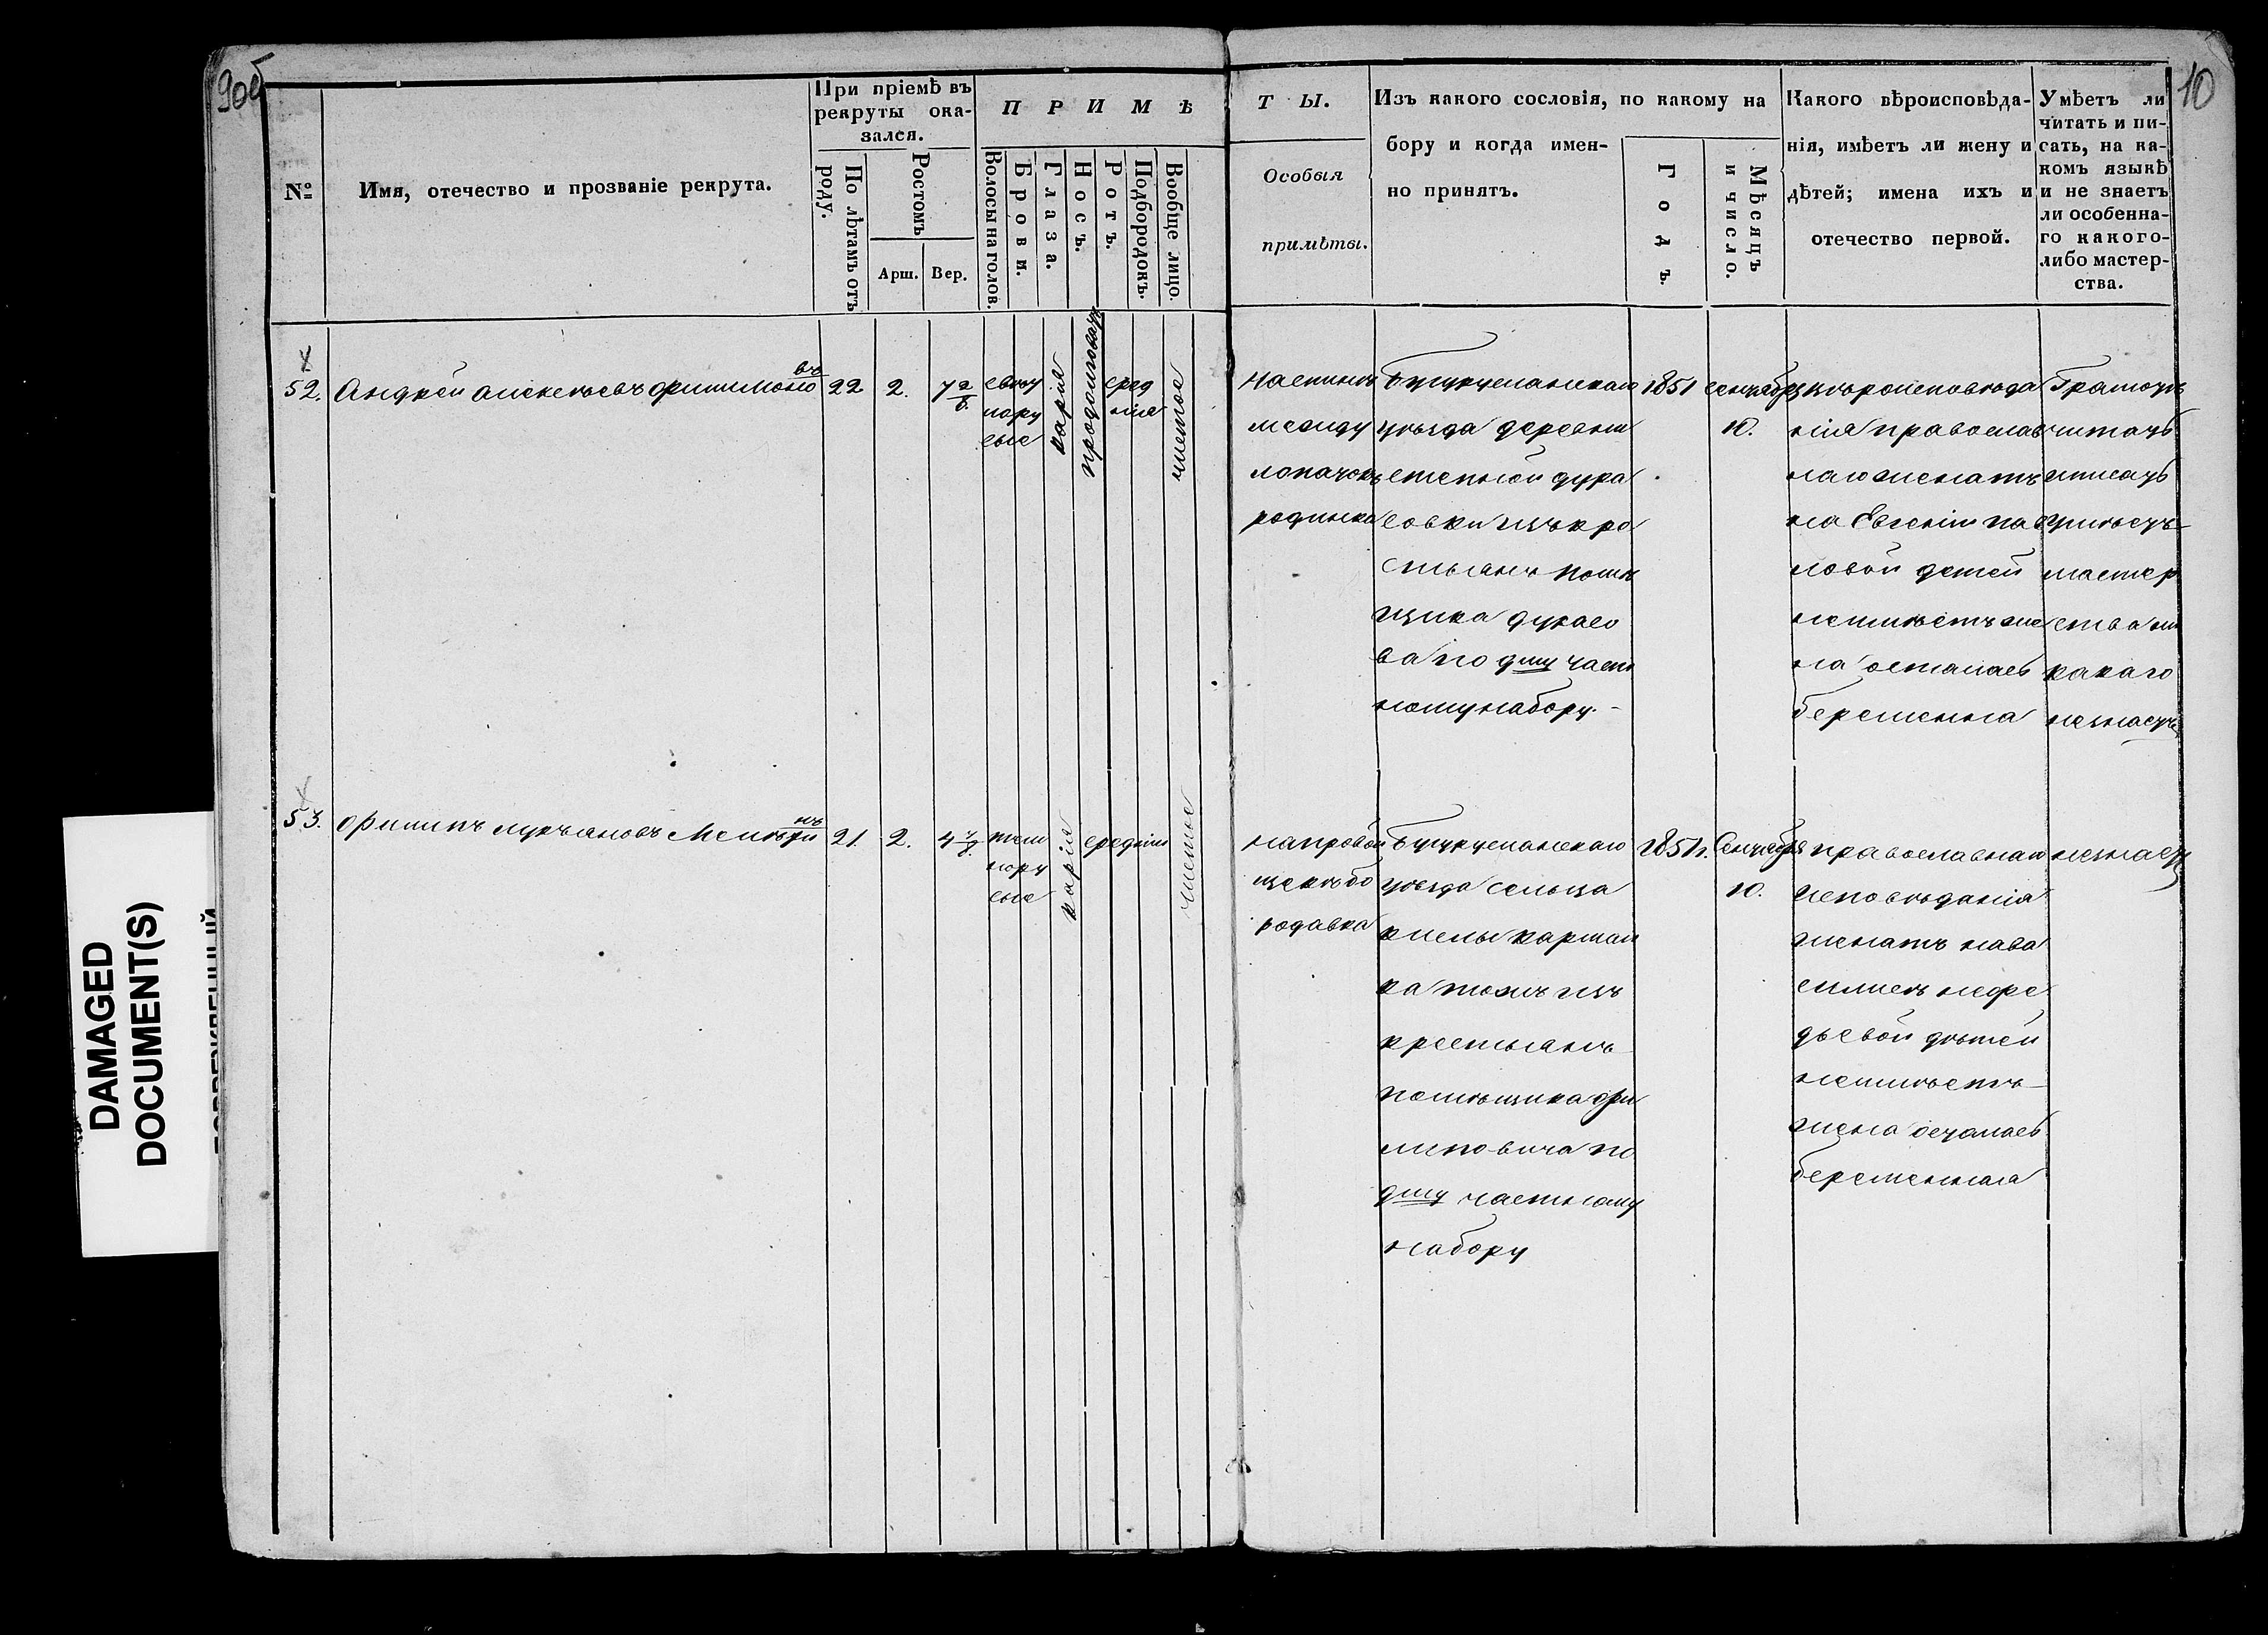 9об
10
№
Имя, отечество и прозваніе рекрута.
При пріемѣ въ
рекруты ока-
зался.
По лѣтамъ отъ
роду.
Ростомъ
Арш.
Вер.
П Р И М Ѣ
Волосы на голов.
Брови.
Глаза.
Носъ.
Ротъ.
Подбородокъ.
Вообще лицо.
Т Ы.
Особыя
примѣты.
Изъ какого сословія, по какому на
бору и когда имен-
но принятъ.
Годъ.
Мѣсяцъ
и число.
Какого вѣроисповѣда-
нія, имѣетъ ли жену и
дѣтей; имена ихъ и
отечество первой.
Умѣетъ ли
читать и пи-
сать, на ка-
комъ языкѣ
и не знаетъ
ли особенна-
го какого-
либо мастер-
ства.
52.
Андрей Алексѣевъ Филимоно
въ
22
2.
7 2/8.
свѣт
лору
сые
карія
продолговатъ
сред
нія
чистое
На спинѣ
между
лопатокъ
родинка
Бугурусланскаго
уѣзда деревни
степной дура
совки изъ кре
стьянъ помѣ
щика Дурасо
ва по 9му част
ному набору.-
1851
Сентября
10.
вѣроисповѣда
нія православ
наго женатъ
на Евгеніи Пав
ловой детей
неимѣетъ же
на осталась
беременна
Грамотѣ
читать
иписать
умѣетъ
мастер
ства ни
какаго
незнаетъ
53.
Филипъ Лукъяновъ
нъ
21.
2.
4 4/8.
тем
нору
сые
карія
средніи
чистое
на правой
щекѣ бо
родавка
Бугурусланскаго
уѣзда сельца
изъ
крестьянъ
помѣщика Фи
липовича по
9му частному
набору
1851г.
Сентября
10.
православнаго
исповѣданія
женатъ нава
силисѣ нефе
дьевой дѣтей
неимѣетъ
жена осталась
беременная
незнаетъ
DAMAGED
DOCUMENT(S)